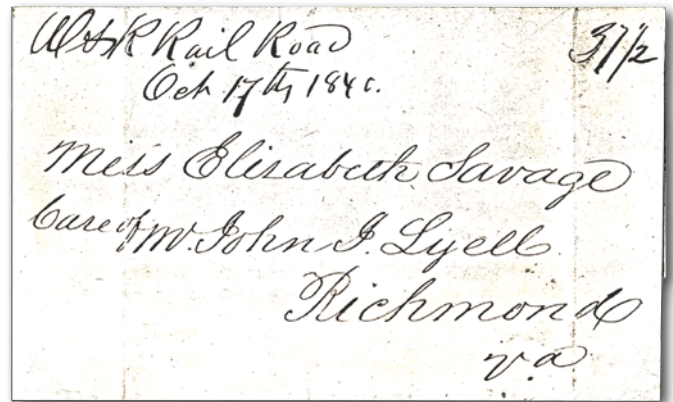 W & R Rail Road
37 1/2
Oct 17th, 1840.
Miss Elisabeth Savage
Care of Mr. John J. Lyell
Richmond
Va